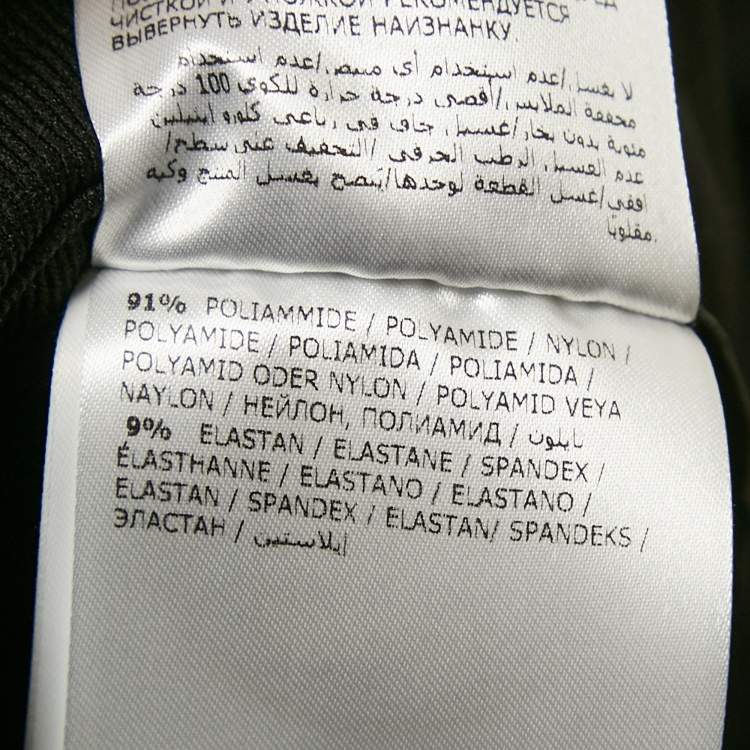 ЧИСТКОЙ И РЕКОМЕНДУЕТСЯ
ВЫВЕРНУТЬ ИЗДЕЛИЕ НАИЗНАНКУ.
لا يغسل/عدم استخدام أي مبيض/عدم استخدام
مجففة الملابس/أقصى درجة حرارة للكوي 100 درجة
مئوية بدون بخار/غسيل جاف في رباعي كلورو إيثيلين
عدم الغسيل الرطب الحرفي/التجفيف على سطح/
أفقي/غسل القطعة لوحدها/يُنصح بغسل المنتج وكيه
مقلوبًا.
91% POLIAMMIDE / POLYAMIDE / NYLON /
POLYAMIDE / POLIAMIDA / POLIAMIDA /
POLYAMID ODER NYLON / POLYAMID VEYA
NAYLON / НЕЙЛОН, ПОЛИАМИД / نايلون
9% ELASTAN / ELASTANE / SPANDEX /
ÉLASTHANNE / ELASTANO / ELASTANO /
ELASTAN / SPANDEX / ELASTAN/ SPANDEKS /
ЭЛАСТАН / إيلاستين